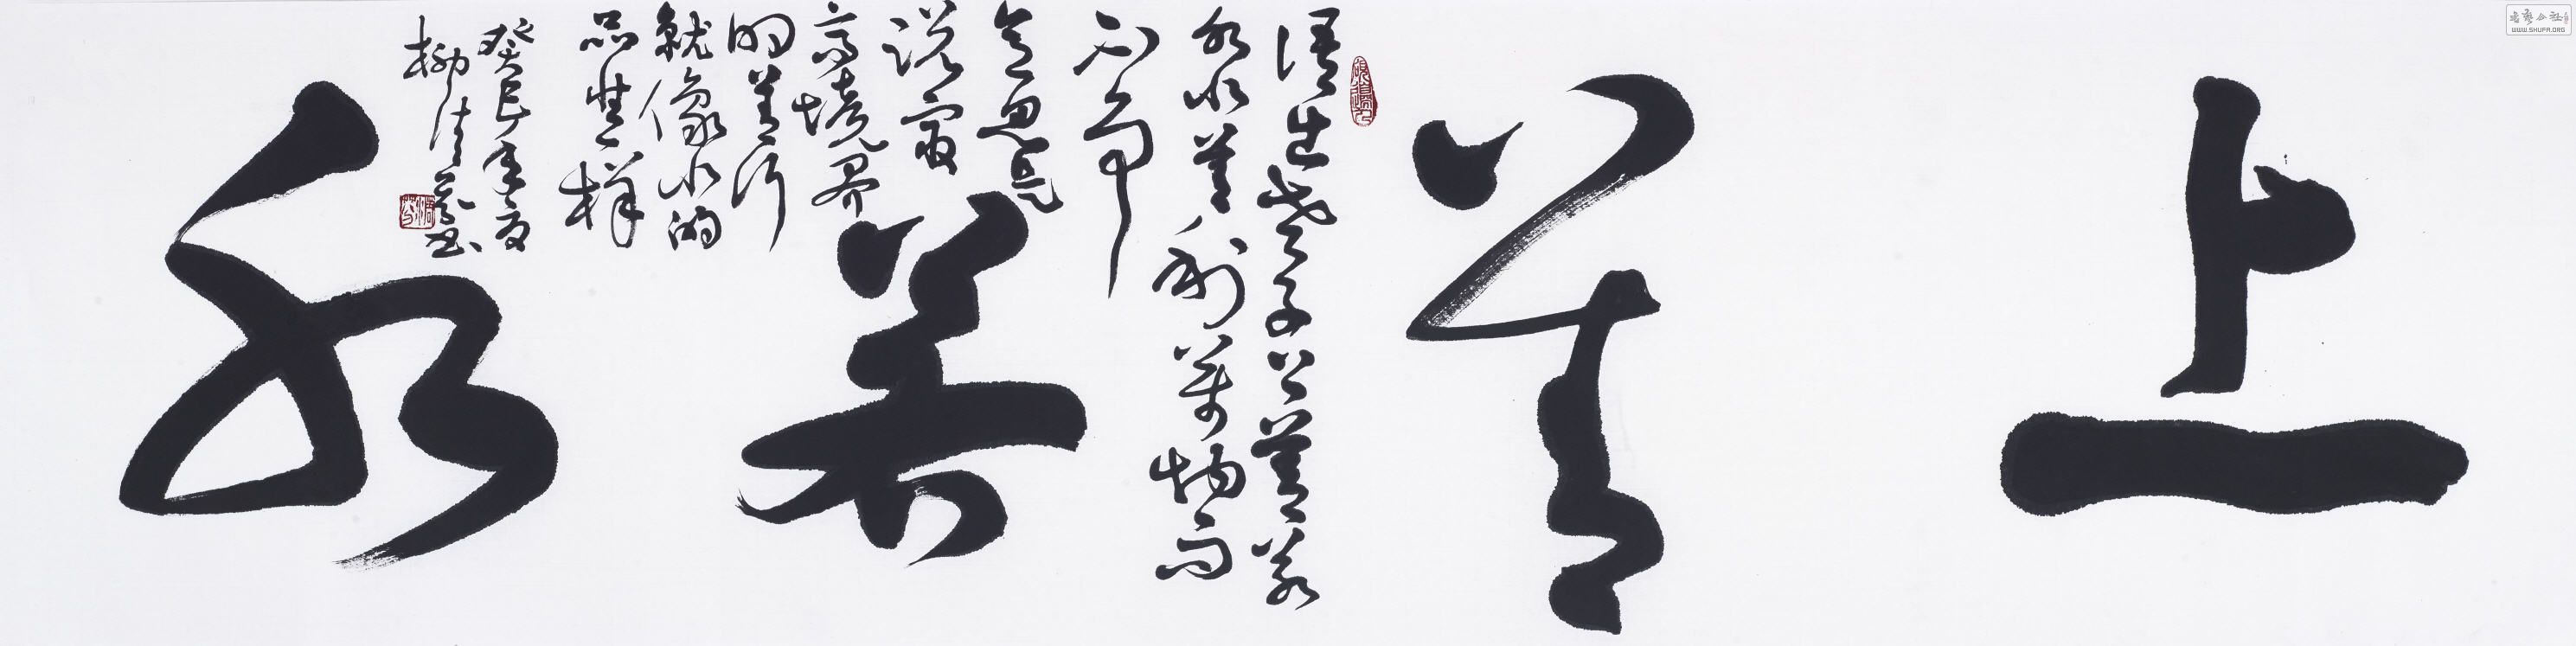 上善若水
语出老子上善若
水水善利万物而
不争
意思是
说最
高境界
的善行
就像水的
品性一样
癸巳年夏
柳清 书
WWW.SHUFA.ORG